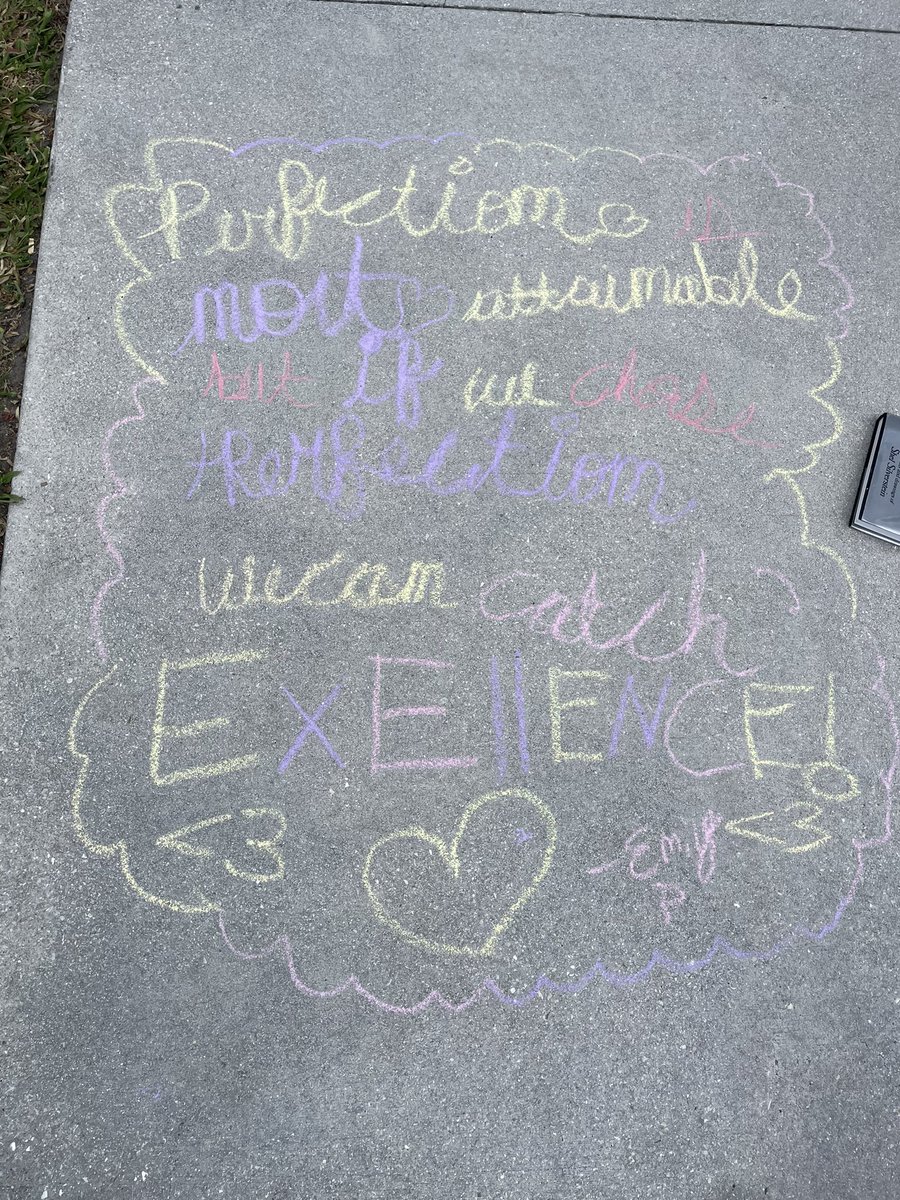 Perfection is
not attainable
but if we chase
Perfection
we can catch
ExEllENCE!
<3 <3
Emily
P